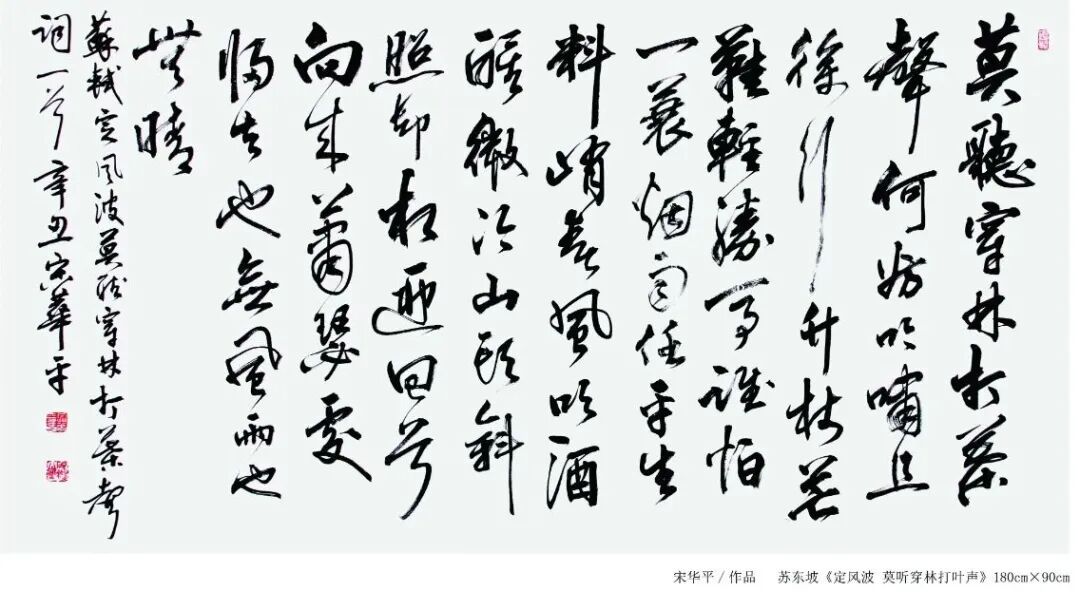 莫聽穿林打葉
聲何妨吟嘯且
徐行竹杖芒
鞋輕勝馬誰怕
一蓑烟雨任平生
料峭春風吹酒
醒微冷山頭斜
照却相迎回首
向來蕭瑟處
歸去也無風雨也
無晴
蘇軾定風波莫聽穿林打葉聲
詞一首 辛丑宋華平
宋华平/作品 苏东坡《定风波 莫听穿林打叶声》180cm×90cm